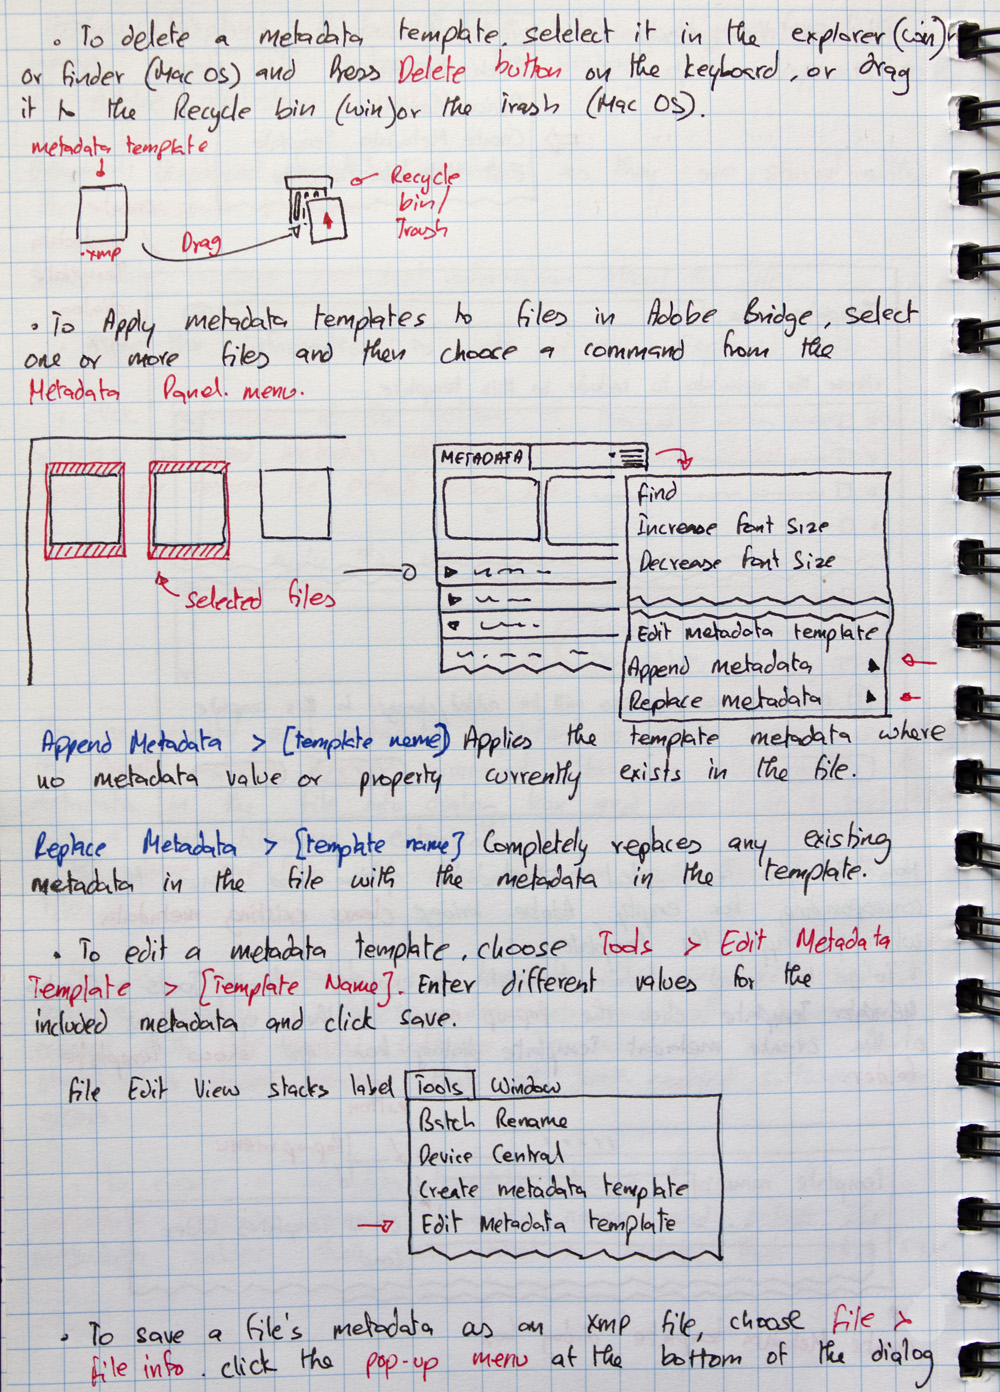 • To delete a metadata template, selelect it in the explorer (win)
or finder (Mac OS) and Press Delete button on the keyboard, or drag
it to the Recycle bin (win) or the Trash (Mac OS).
metadata template
.xmp
Drag
Recycle
bin/
Trash
• To Apply metadata templates to files in Adobe Bridge, select
one or more files and then choose a command from the
Metadata Panel menu.
selected files
METADATA
Find
Increase font Size
Decrease font Size
Edit metadata template
Append metadata
Replace metadata
Append Metadata > [template name] Applies the template metadata where
no metadata value or property currently exists in the file.
Replace Metadata > [template name] Completely replaces any existing
metadata in the file with the metadata in the template.
• To edit a metadata template, choose Tools > Edit Metadata
Template > [Template Name]. Enter different values for the
included metadata and click save.
File Edit View stacks label Tools Window
Batch Rename
Device Central
Create metadata template
Edit Metadata template
• To save a file's metadata as an xmp file, choose file >
file info. click the pop-up menu at the bottom of the dialog